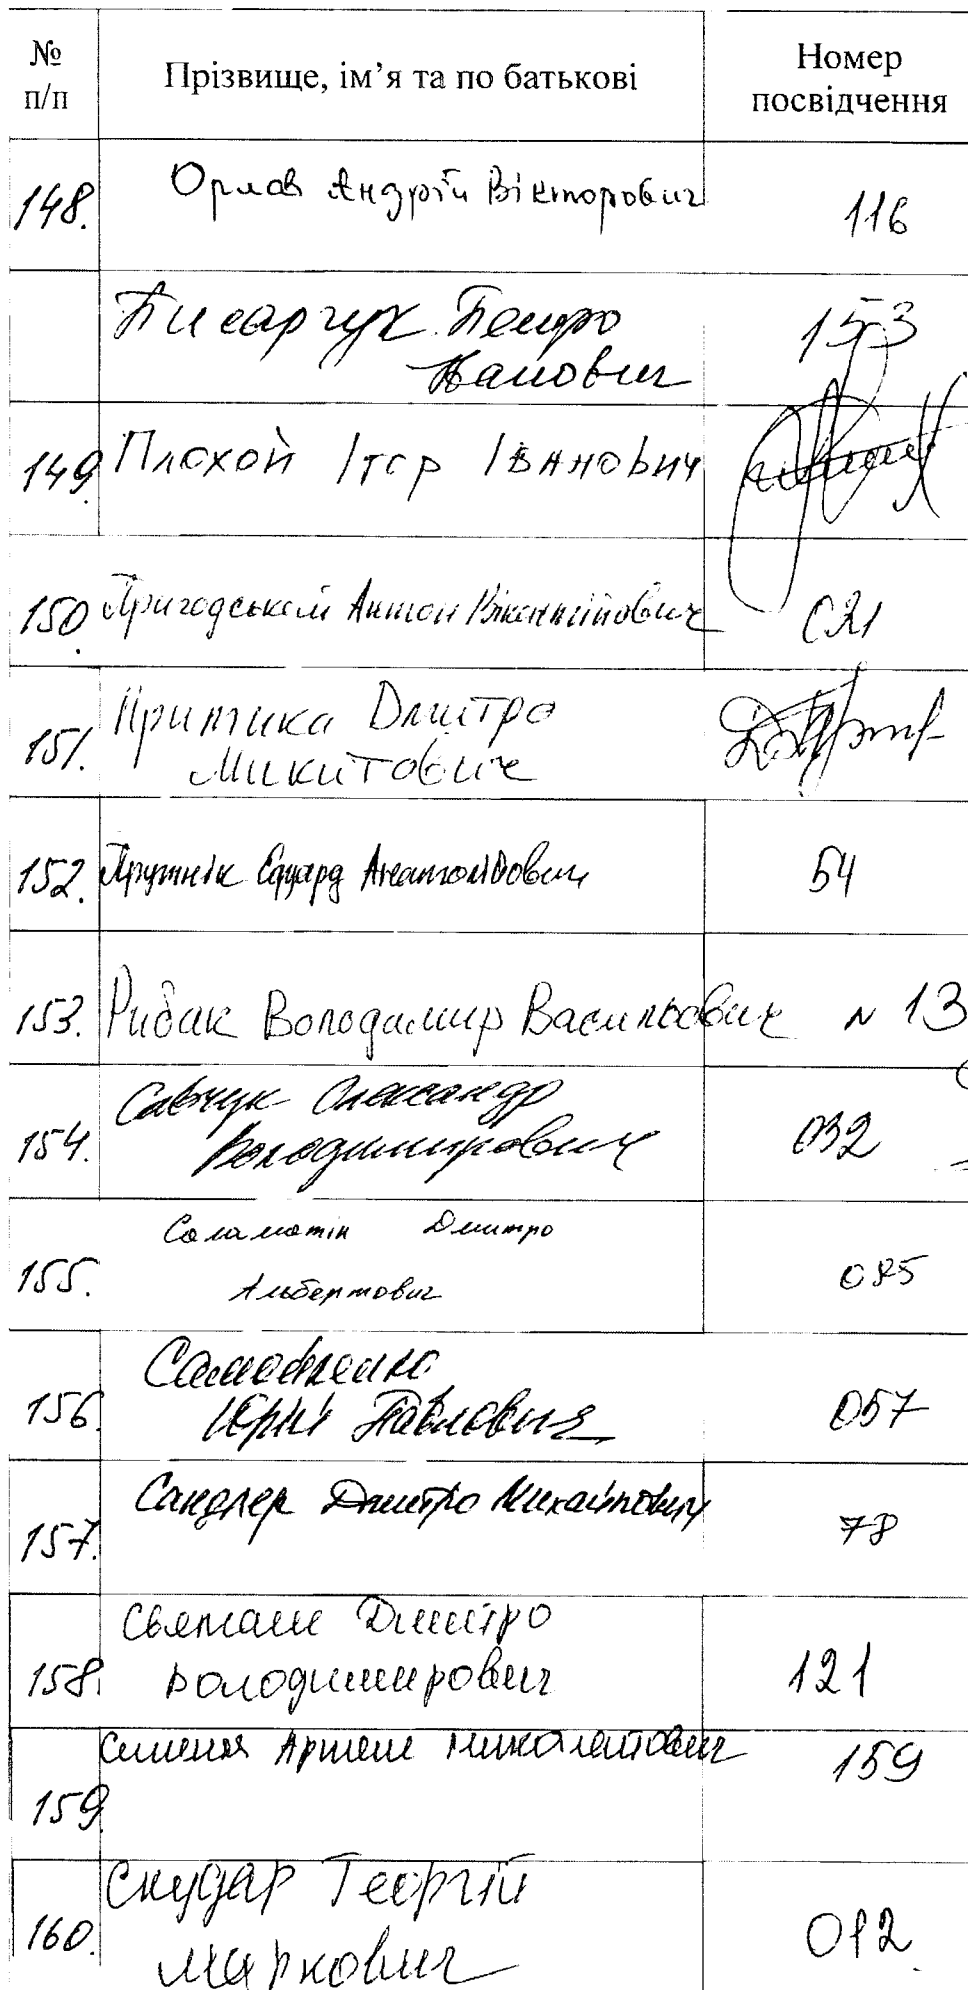 № п/п Прізвище, ім'я та по батькові Номер посвідчення
148. Орлов Андрій Вікторович 116
Писарчук Петро 153
Іванович
149. Плохой Ігор Іванович
150. Пригодський Антон Вікентійович 021
151. Притика Дмитро
Микитович
152. Прутнік Едуард Анатолійович 54
153. Рибак Володимир Васильович № 13
154. Савчук Олександр 032
Володимирович
155. Саламатін Дмитро 085
Альбертович
156. Самойленко 057
Юрій Павлович
157. Сандлер Дмитро Михайлович 78
158. Святаш Дмитро 121
Володимирович
159. Семенюк Артем 159
160. Скударь Георгій 012
Маркович